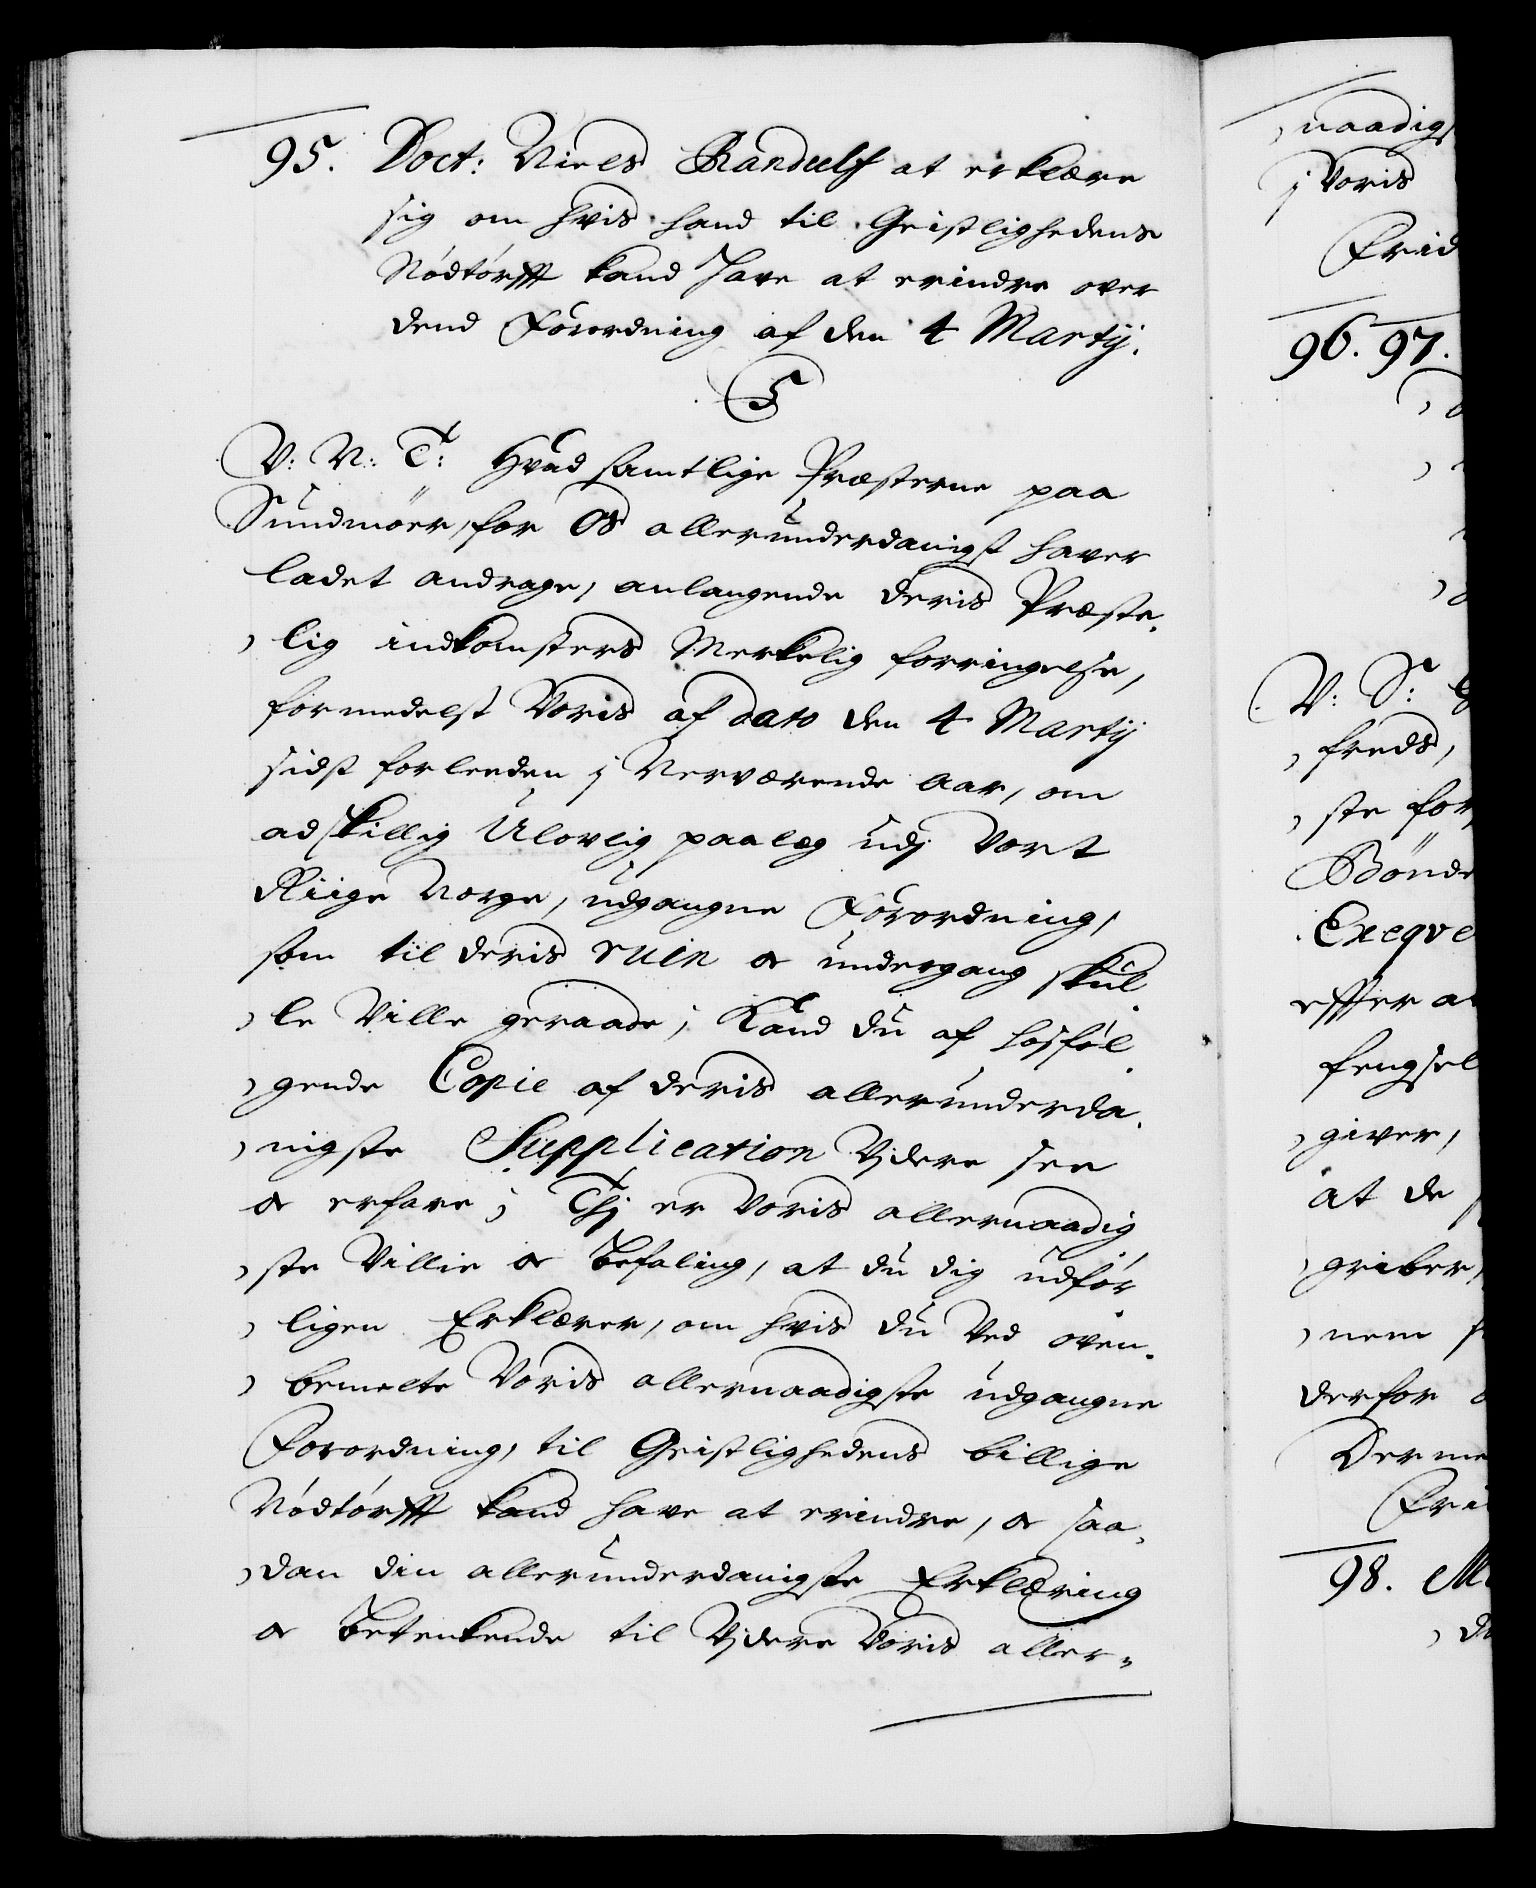 95. Doct: Niels Randulf at erklære
sig om hvis hand til Geistlighedens
Nødtørfft kand have at erindre over
dend Forordning af den 4 Martij.
V: N: T: Hvad samtlige Præsterne paa
Sundmöer, for Os allerunderdanigst haver
ladet andrage, anlangende deris Præste-
lig indkomsters Merkelig forringelse,
formedelst Voris af dato den 4 Martij
sidst forleeden j Nerværende Aar, om
adskillig Ulovlig paalæg udj Vort
Riige Norge, udgangne Forordning,
som til deris ruin og undergang skul-
le Ville geraade; Kand du af hosföl-
gende Copie af deris allerunderda-
nigste Supplication Videre see
og erfare; Thj er Voris allernaadig-
ste Villie og Befaling, at du dig udför-
ligen Erklærer, om hvis du Ved oven-
bemelte Voris allernaadigste udgangne
Forordning, til Geistlighedens billige
Nødtørfft kand have at erindre, og saa-
dan din allerunderdanigste Erklæring
og Betenkende til Videre Voris aller-
naadigs
j Voris
Frid
96. 97.
V: S:
freds,
ste for
Bönde
Exeqve
effter a
fengsel
giver,
at de
griber,
nem
derfor
Derme
Fri
98. M